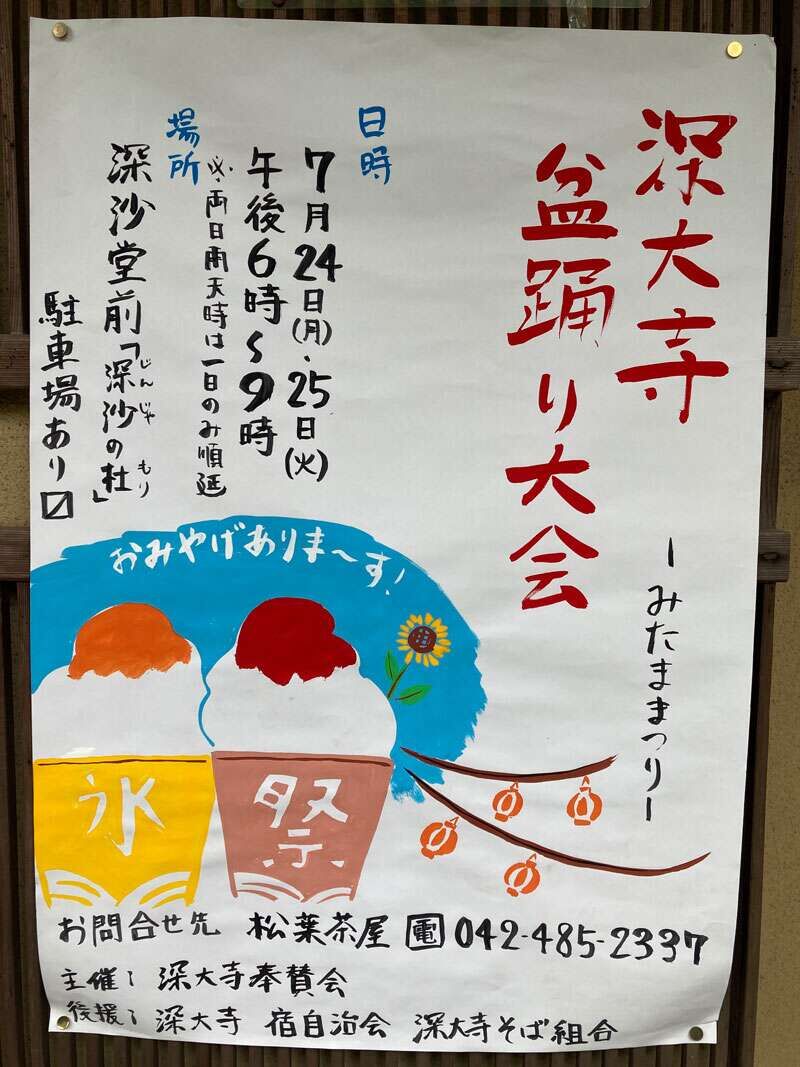 深大寺
盆踊り大会
ーみたままつりー
日時
7月24日(月)・25日(火)
午後6時〜9時
※両日雨天時は一日のみ順延
場所
深沙堂前「深沙の杜」
じんじゃ もり
駐車場あり〼
おみやげありま〜す!
氷
祭
お問合せ先 松葉茶屋 電 042-485-2337
主催: 深大寺奉賛会
後援: 深大寺 宿自治会 深大寺そば組合